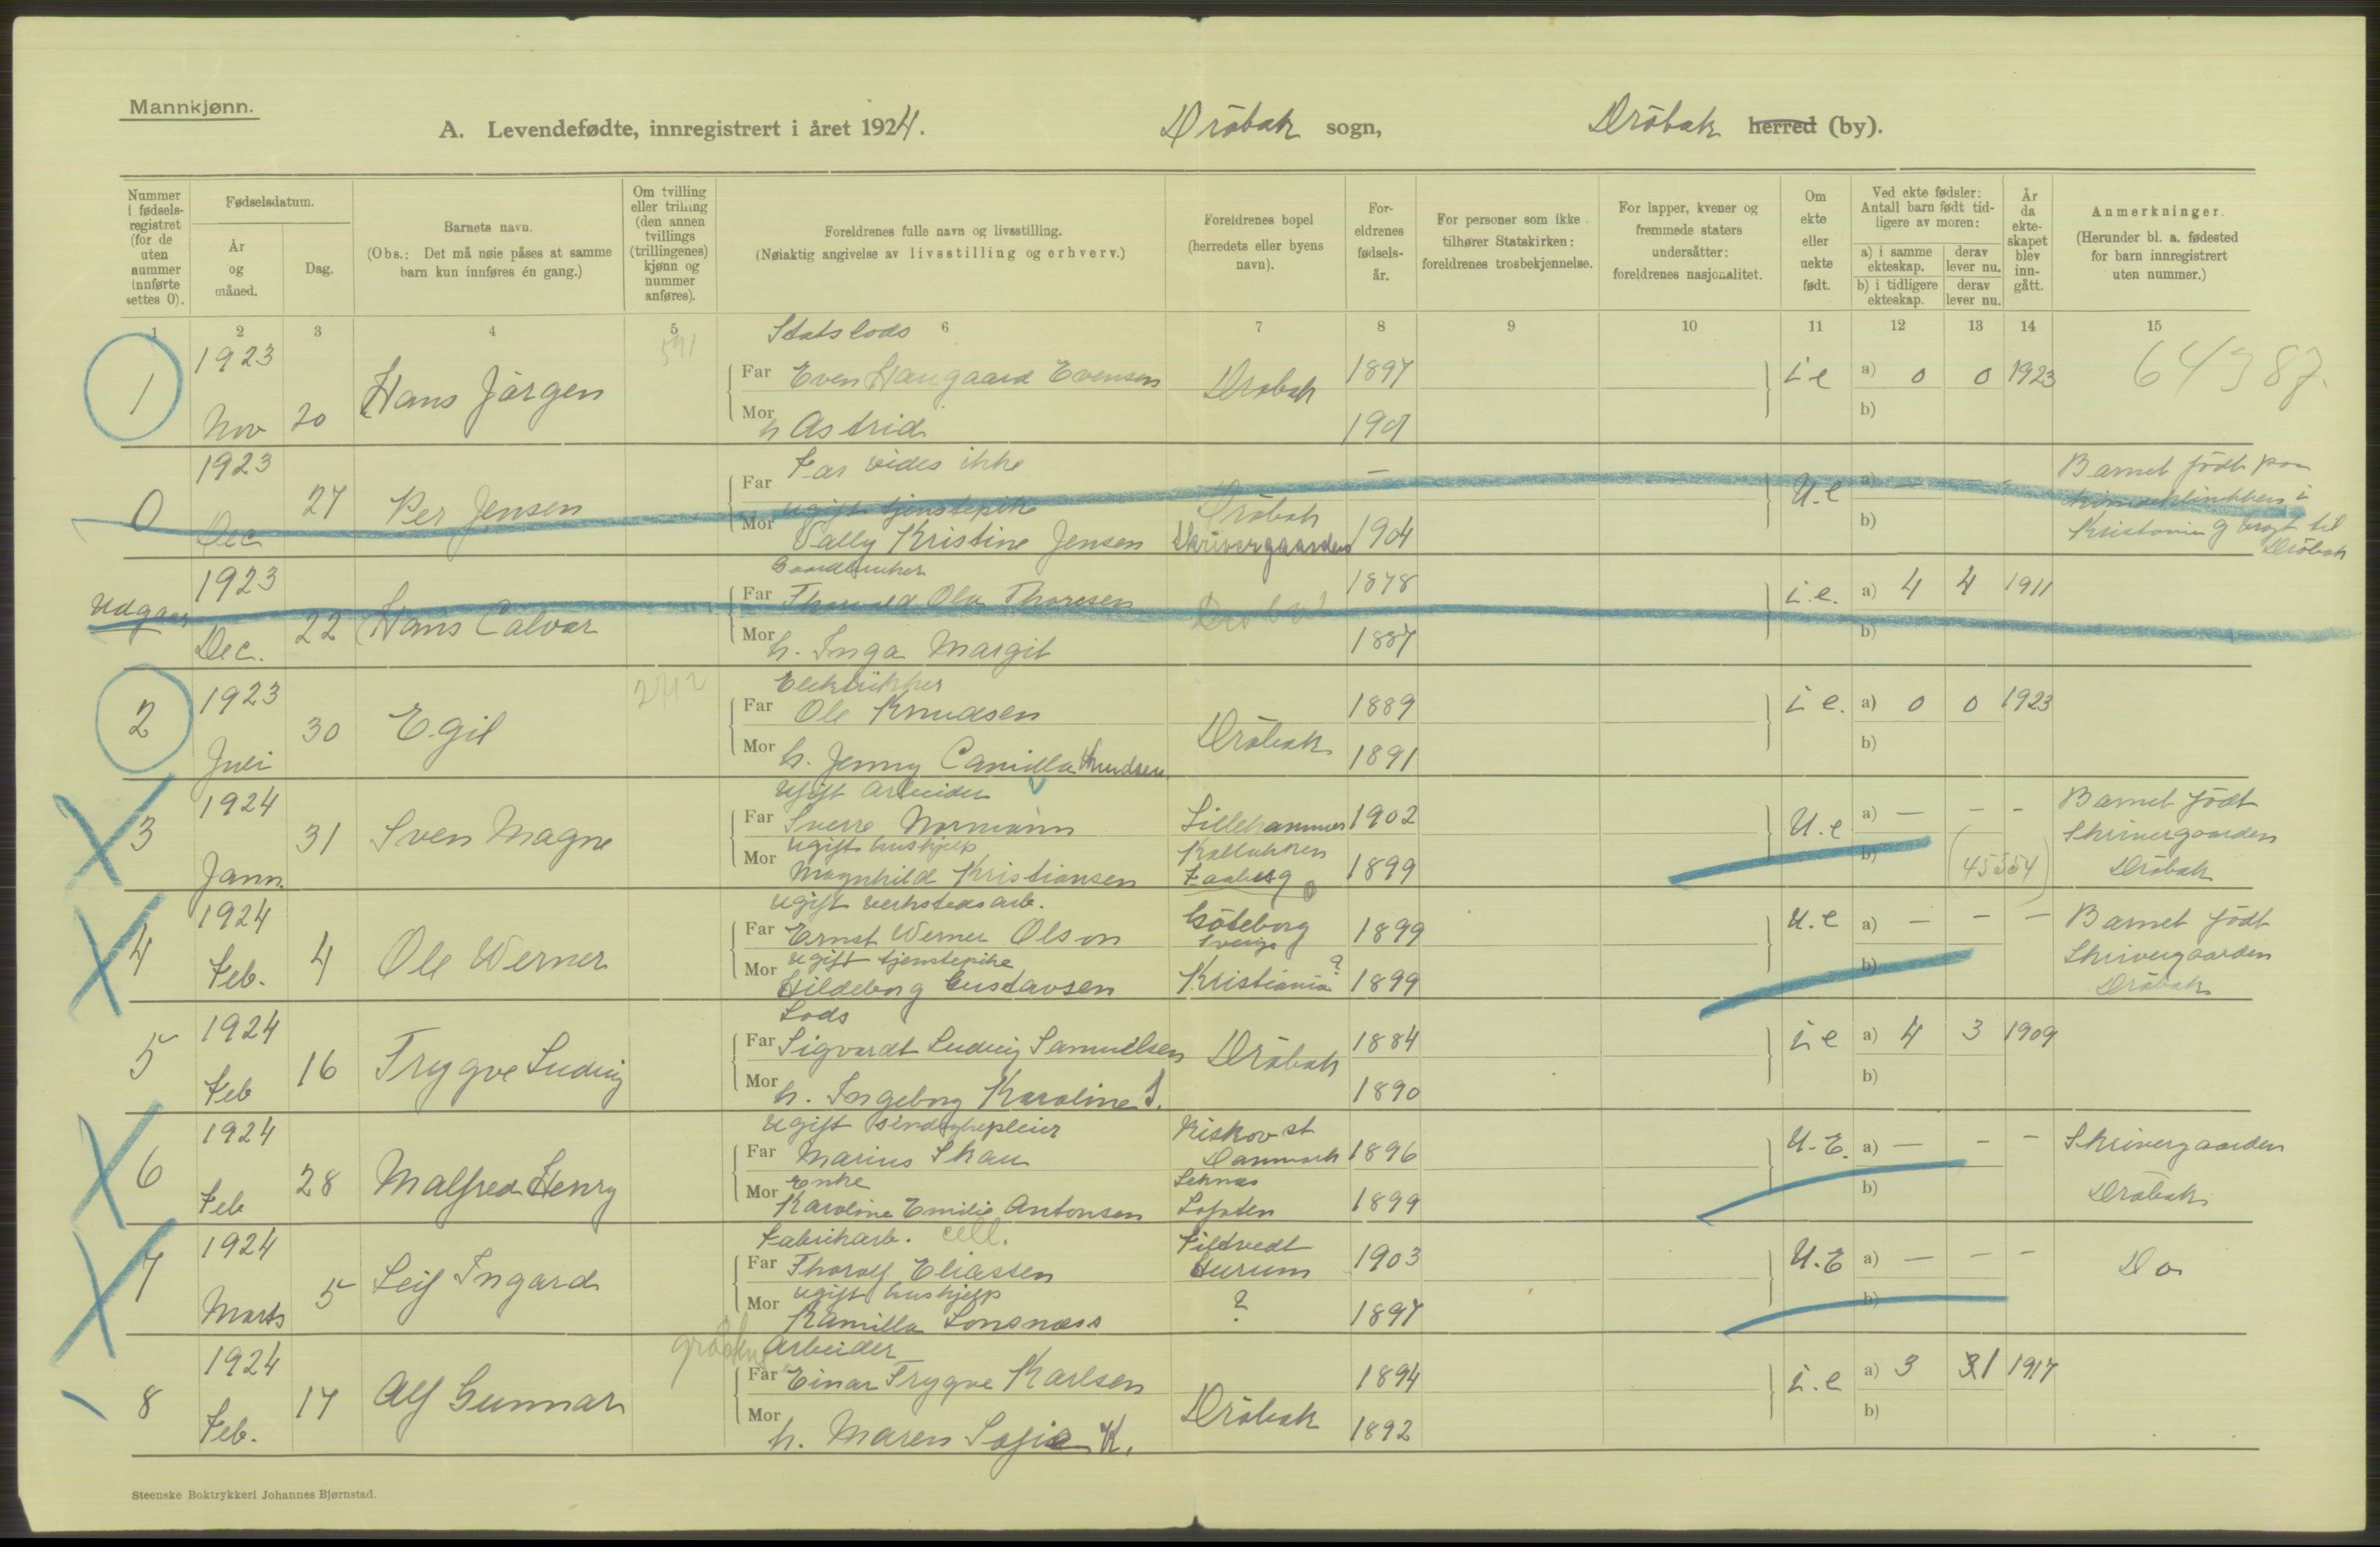 Mannkjønn.
A. Levendefødte, innregistrert i året 1924. Dröbak sogn, Dröbak herred (by).
Nummer i fødsels-registret (for de uten nummer innførte settes 0).
Fødselsdatum.
År og måned.
Dag.
Barnets navn.
(Obs.: Det må nøie påses at samme barn kun innføres én gang.)
Om tvilling eller trilling (den annen tvillings (trillingenes) kjønn og nummer anføres).
Foreldrenes fulle navn og livsstilling.
(Nøiaktig angivelse av livsstilling og erhverv.)
Foreldrenes bopel (herredets eller byens navn).
For-eldrenes fødsels-år.
For personer som ikke tilhører Statskirken: foreldrenes trosbekjennelse.
For lapper, kvener og fremmede staters undersåtter: foreldrenes nasjonalitet.
Om ekte eller uekte født.
Ved ekte fødsler: Antall barn født tid-ligere av moren:
a) i samme ekteskap.
derav lever nu.
b) i tidligere ekteskap.
derav lever nu.
År da ekte-skapet blev inn-gått.
Anmerkninger.
(Herunder bl. a. fødested for barn innregistrert uten nummer.)
1 2 3 4 5 6 7 8 9 10 11 12 13 14 15
Statslods
1 1923 Nov 20 Hans Jörgen
Far Even Haugaard Evensen Dröbak 1897 i e a) 0 0 1923 64387.
Mor h Astrid 1901 b)
0 1923 Dec 27 Per Jensen
Far Far vides ikke — U.e a) — —
ugift tjenestepike Dröbak
Mor Vally Kristine Jensen Skrivergaarden 1904 b)
Barnet födt paa
Kristania og bragt til
Dröbak
Udgaar 1923 Dec. 22 Hans Calvar
Far Thorvald Ola Thoresen Dröbak 1878 i.e. a) 4 4 1911
Mor h. Inga Margit 1887 b)
2 1923 Juli 30 Egil
Elektrikker
Far Ole Knudsen Dröbak 1889 i e. a) 0 0 1923
Mor h. Jenny Camilla Knudsen 1891 b)
3 1924 Jann. 31 Sven Magne
Ugift Arbeider
Far Sverre Normann Lillehammer 1902 U.e a) — - -
ugift hushjelp
Mor Magnhild Kristiansen Faaberg 1899 b) (45554)
Barnet födt
Skrivergaarden
Dröbak
4 1924 Feb. 4 Ole Werner
Ugift verkstedsarb.
Far Ernst Werner Olson Göteborg Sverige 1899 U.e a) — — —
ugift tjenstepike
Mor Hildeborg Gustavsen Kristiania ? 1899 b)
Barnet födt
Skrivergaarden
Dröbak
5 1924 Feb 16 Trygve Ludvig
Lods
Far Sigvardt Ludvig Samuelsen Dröbak 1884 i e a) 4 3 1909
Mor h. Ingeborg Karoline S. 1890 b)
6 1924 Feb 28 Malfred Henry
Ugift sindsykepleier
Far Marius Skau Riskov st Danmark 1896 U.E. a) — - -
Enke
Mor Karoline Emilie Antonsen Leknes Lofoten 1899 b)
Skrivergaarden
Dröbak
7 1924 Marts 5 Leif Ingard
Fabrikarb. cell.
Far Thorolf Eliassen Filtvedt Hurum 1903 U.E a) — — —
ugift hushjelp
Mor Kamilla Lonsnæss ? 1897 b)
Do
8 1924 Feb. 17 Alf Gunnar
Arbeider
Far Einar Trygve Karlsen Dröbak 1894 i.e a) 3 1 1917
Mor h. Maren Sofie K. 1892 b)
Steenske Boktrykkeri Johannes Bjørnstad.